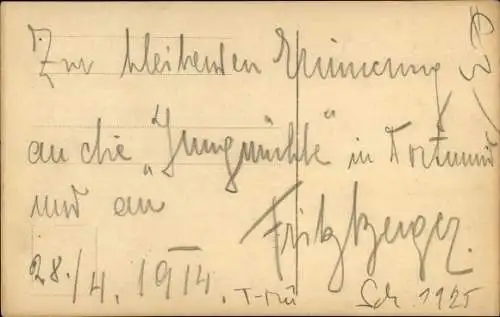 Zur bleibenden Erinnerung
an die „Jungmühle“ in Dortmund
und an
Fritz Berger.
28./4. 1914.
T-Mü
1925